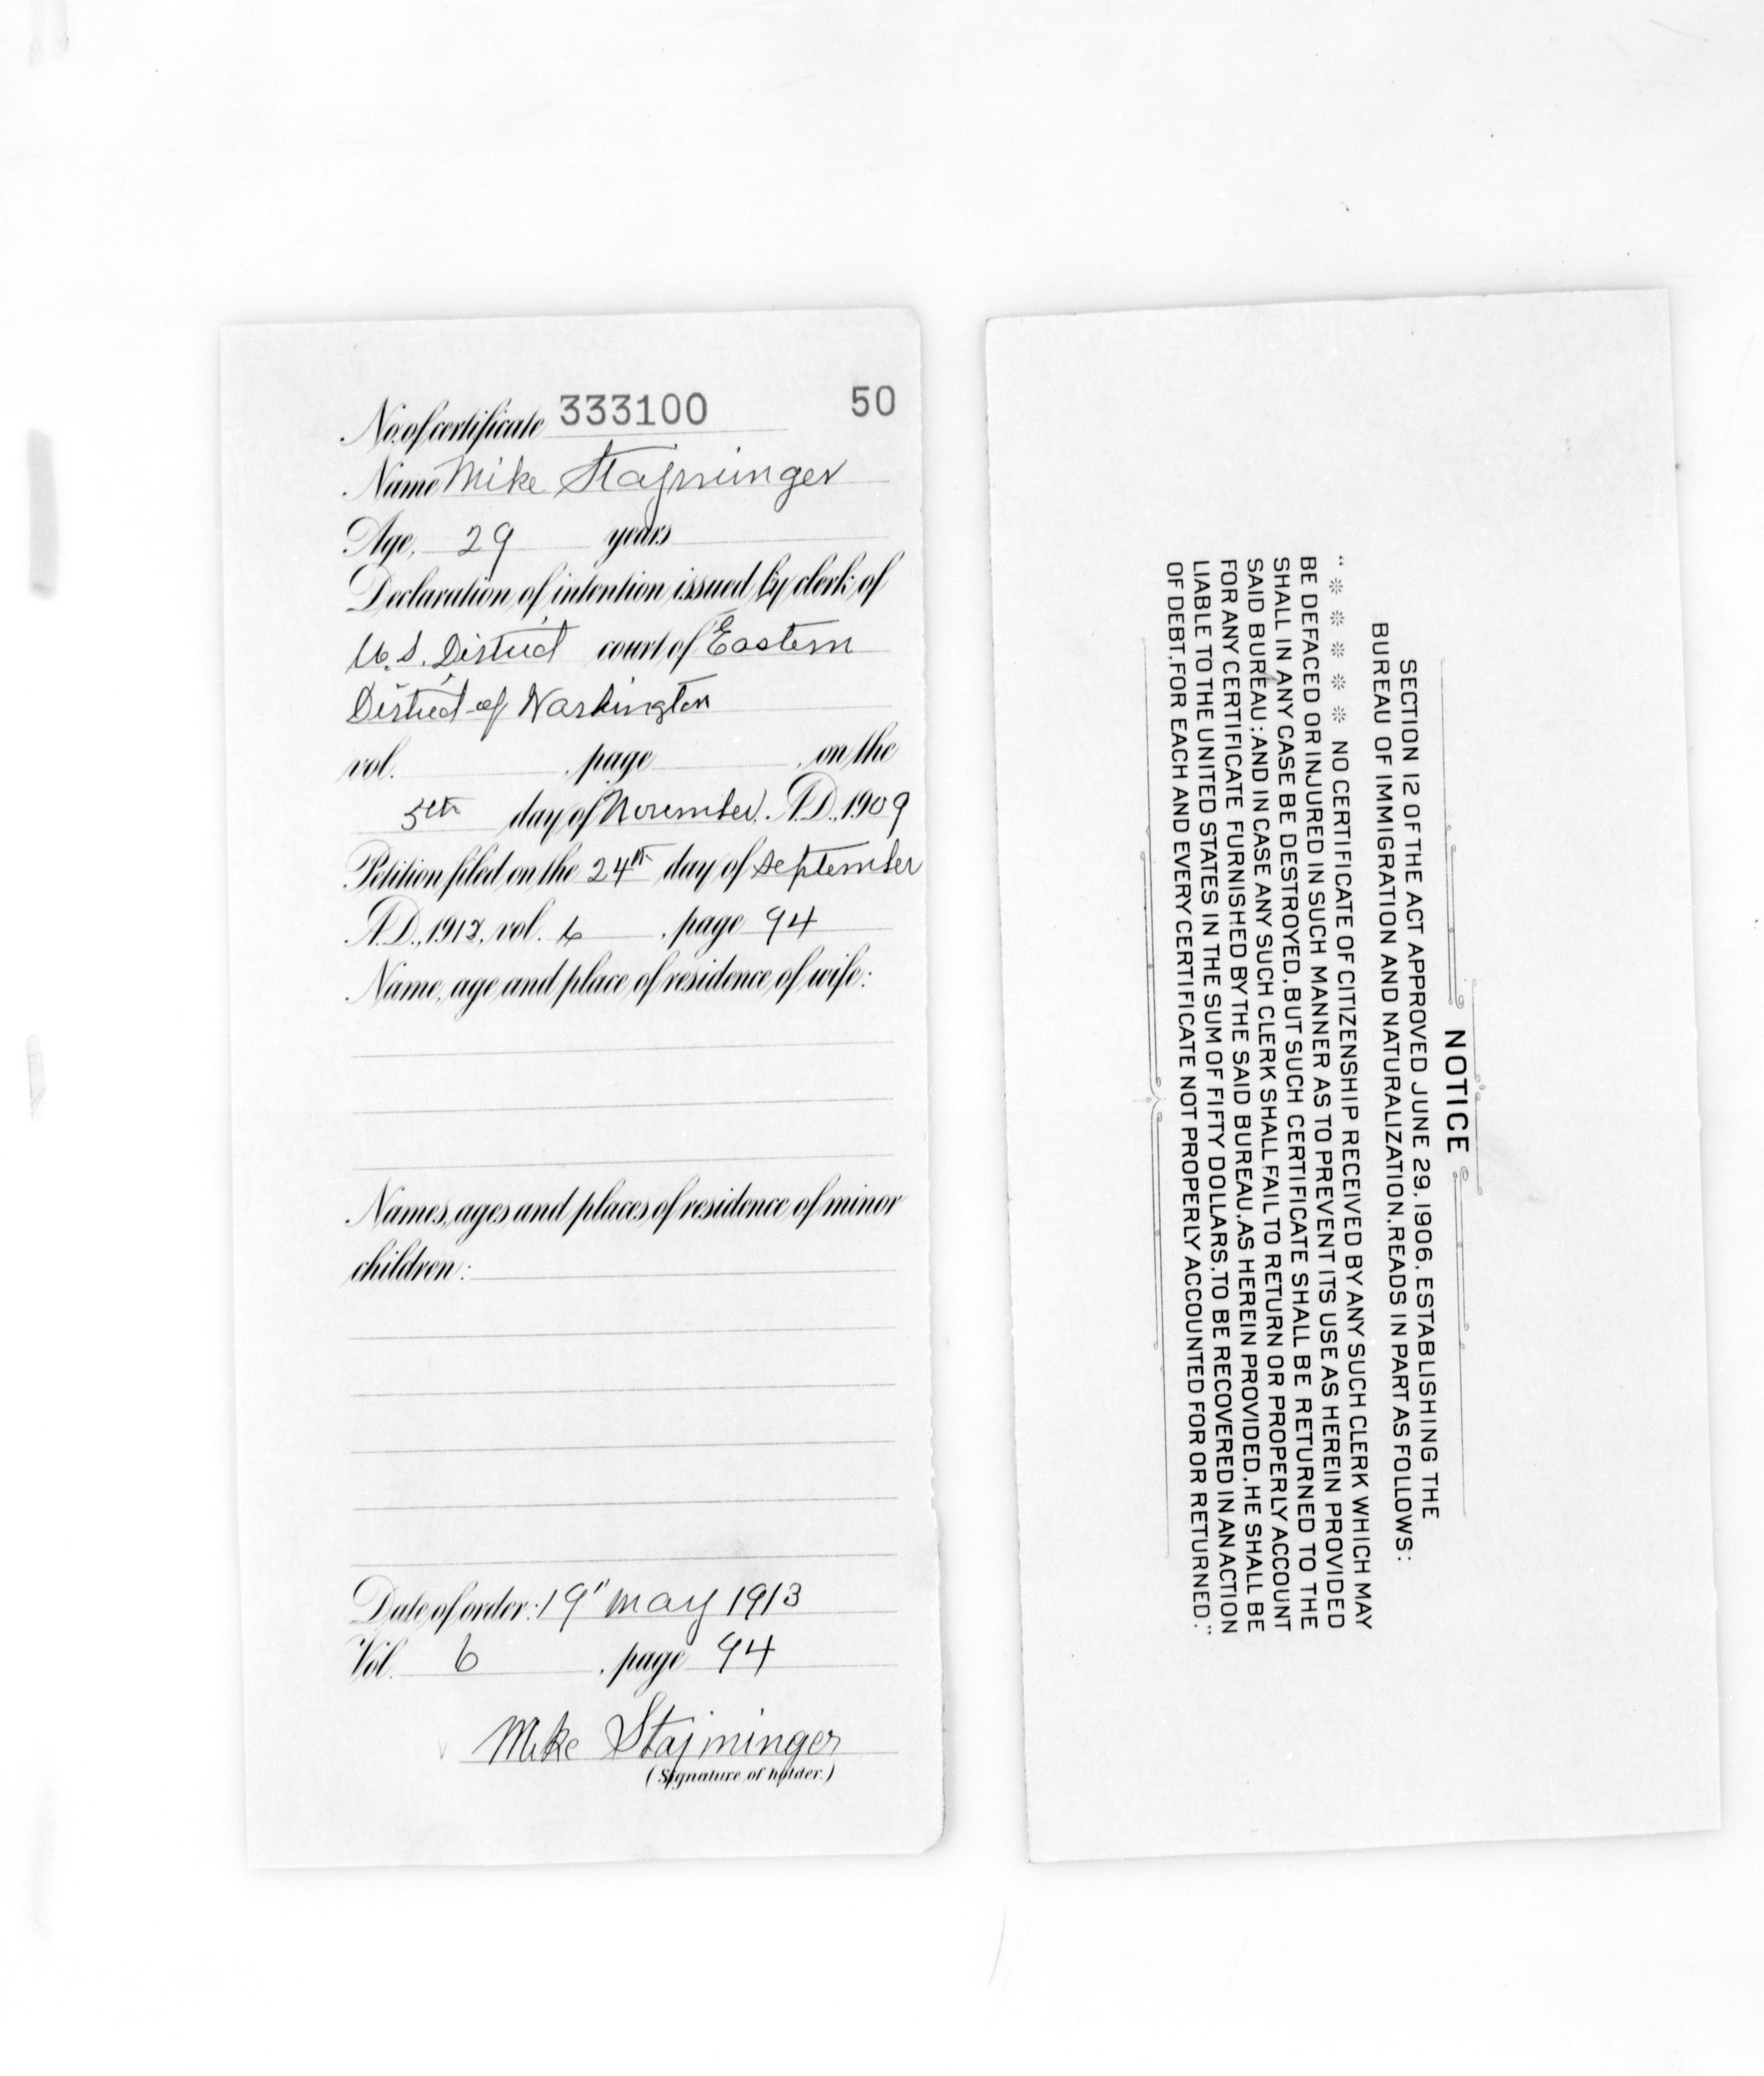 No. of certificate 333100 50
Name Mike Stajninger
Age, 29 years
Declaration of intention issued by clerk of
U.S. District court of Eastern
District of Washington
vol. , page , on the
5th day of November, A.D., 1909
Petition filed on the 24th day of September
A.D., 1912, vol. 6 , page 94
Name, age and place of residence of wife:
Names, ages and places of residence of minor
children:
Date of order: 19" May 1913
Vol. 6 , page 94
Mike Stajninger
(Signature of holder.)
NOTICE
SECTION 12 OF THE ACT APPROVED JUNE 29, 1906, ESTABLISHING THE
BUREAU OF IMMIGRATION AND NATURALIZATION, READS IN PART AS FOLLOWS:
" * * * * * NO CERTIFICATE OF CITIZENSHIP RECEIVED BY ANY SUCH CLERK WHICH MAY
BE DEFACED OR INJURED IN SUCH MANNER AS TO PREVENT ITS USE AS HEREIN PROVIDED
SHALL IN ANY CASE BE DESTROYED, BUT SUCH CERTIFICATE SHALL BE RETURNED TO THE
SAID BUREAU; AND IN CASE ANY SUCH CLERK SHALL FAIL TO RETURN OR PROPERLY ACCOUNT
FOR ANY CERTIFICATE FURNISHED BY THE SAID BUREAU, AS HEREIN PROVIDED, HE SHALL BE
LIABLE TO THE UNITED STATES IN THE SUM OF FIFTY DOLLARS, TO BE RECOVERED IN AN ACTION
OF DEBT, FOR EACH AND EVERY CERTIFICATE NOT PROPERLY ACCOUNTED FOR OR RETURNED."